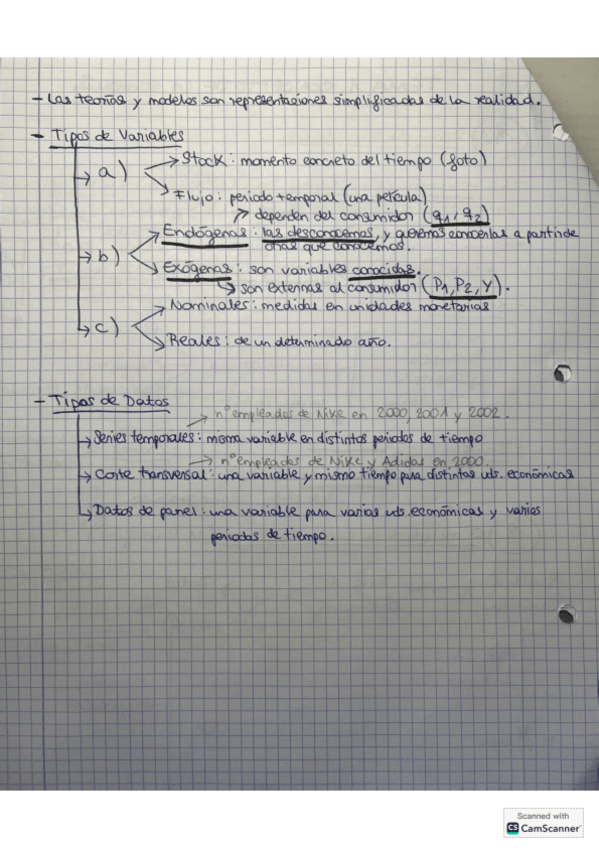 - Las teorías y modelos son representaciones simplificadas de la realidad.
- Tipos de Variables
a) Stock: momento concreto del tiempo (foto)
Flujo: periodo temporal (una película)
depender del consumidor (q1, q2)
b) Endógenas: las desconocemos, y queremos conocerlas a partir de
otras que conocemos.
Exógenas: son variables conocidas.
son externas al consumidor (P1, P2, Y).
c) Nominales: medidas en unidades monetarias
Reales: de un determinado año.
- Tipos de Datos
nº empleados de Nike en 2000, 2001 y 2002.
Series temporales: misma variable en distintos periodos de tiempo
nº empleados de Nike y Adidas en 2000.
Corte transversal: una variable y mismo tiempo para distintas uds. económicas
Datos de panel: una variable para varias uds. económicas y varios
periodos de tiempo.
Scanned with
CS CamScanner